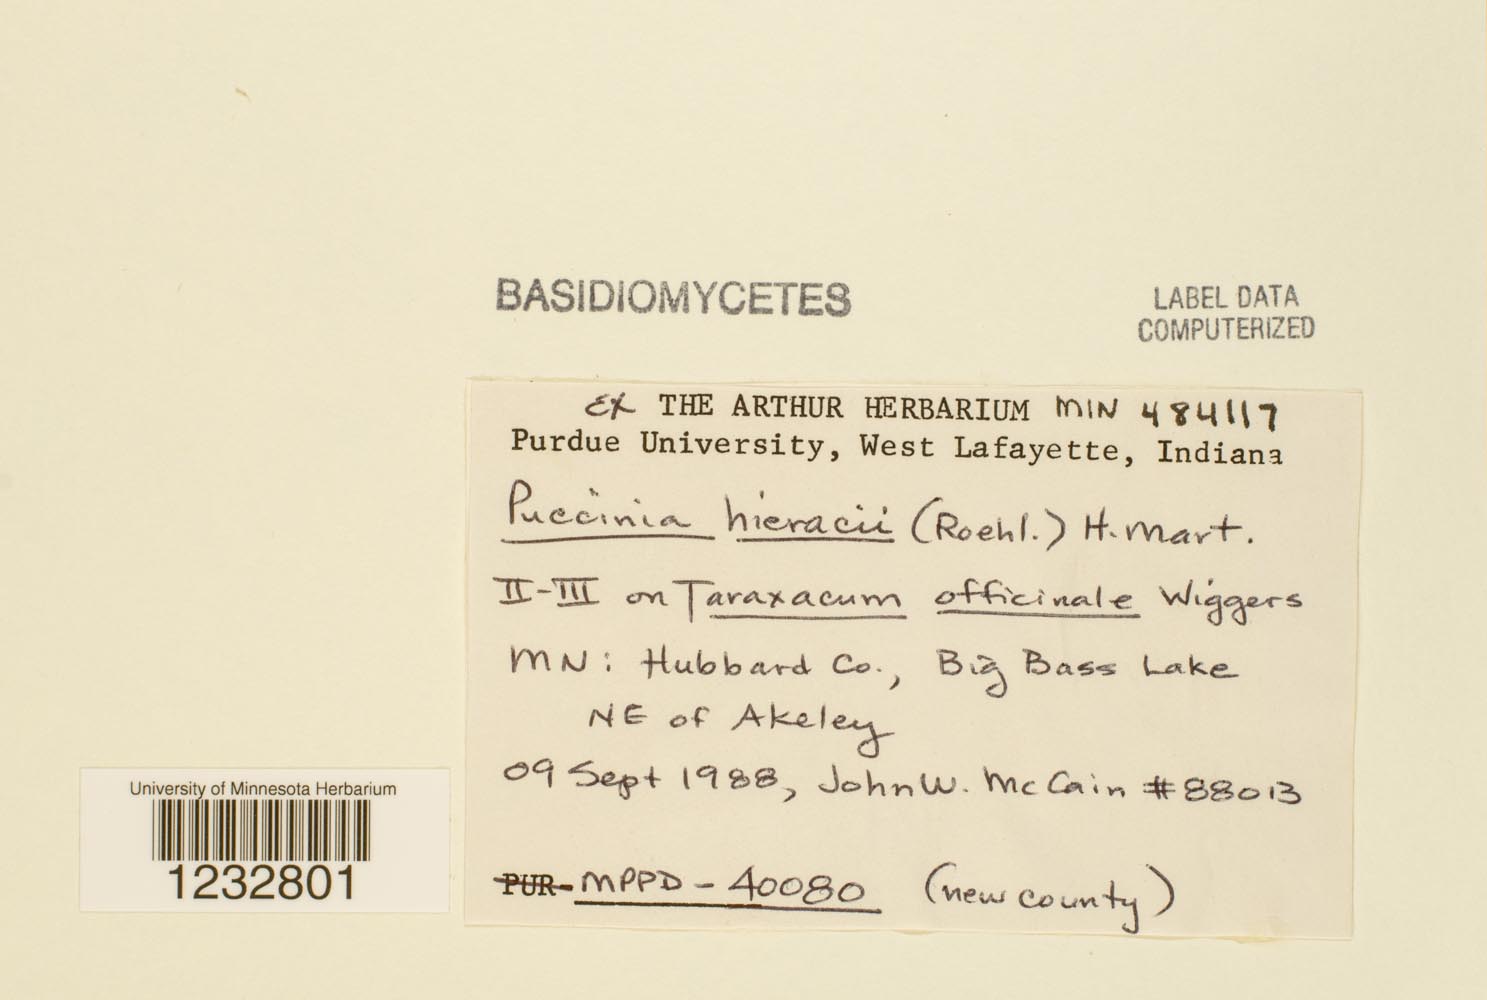 BASIDIOMYCETES
LABEL DATA
COMPUTERIZED
Ex THE ARTHUR HERBARIUM MIN 484117
Purdue University, West Lafayette, Indiana
Puccinia hieracii (Roehl.) H. Mart.
II-III on Taraxacum officinale Wiggers
MN: Hubbard Co., Big Bass Lake
NE of Akeley
09 Sept 1988, John W. McCain #88013
PUR- MPPD-40080 (new county)
University of Minnesota Herbarium
1232801